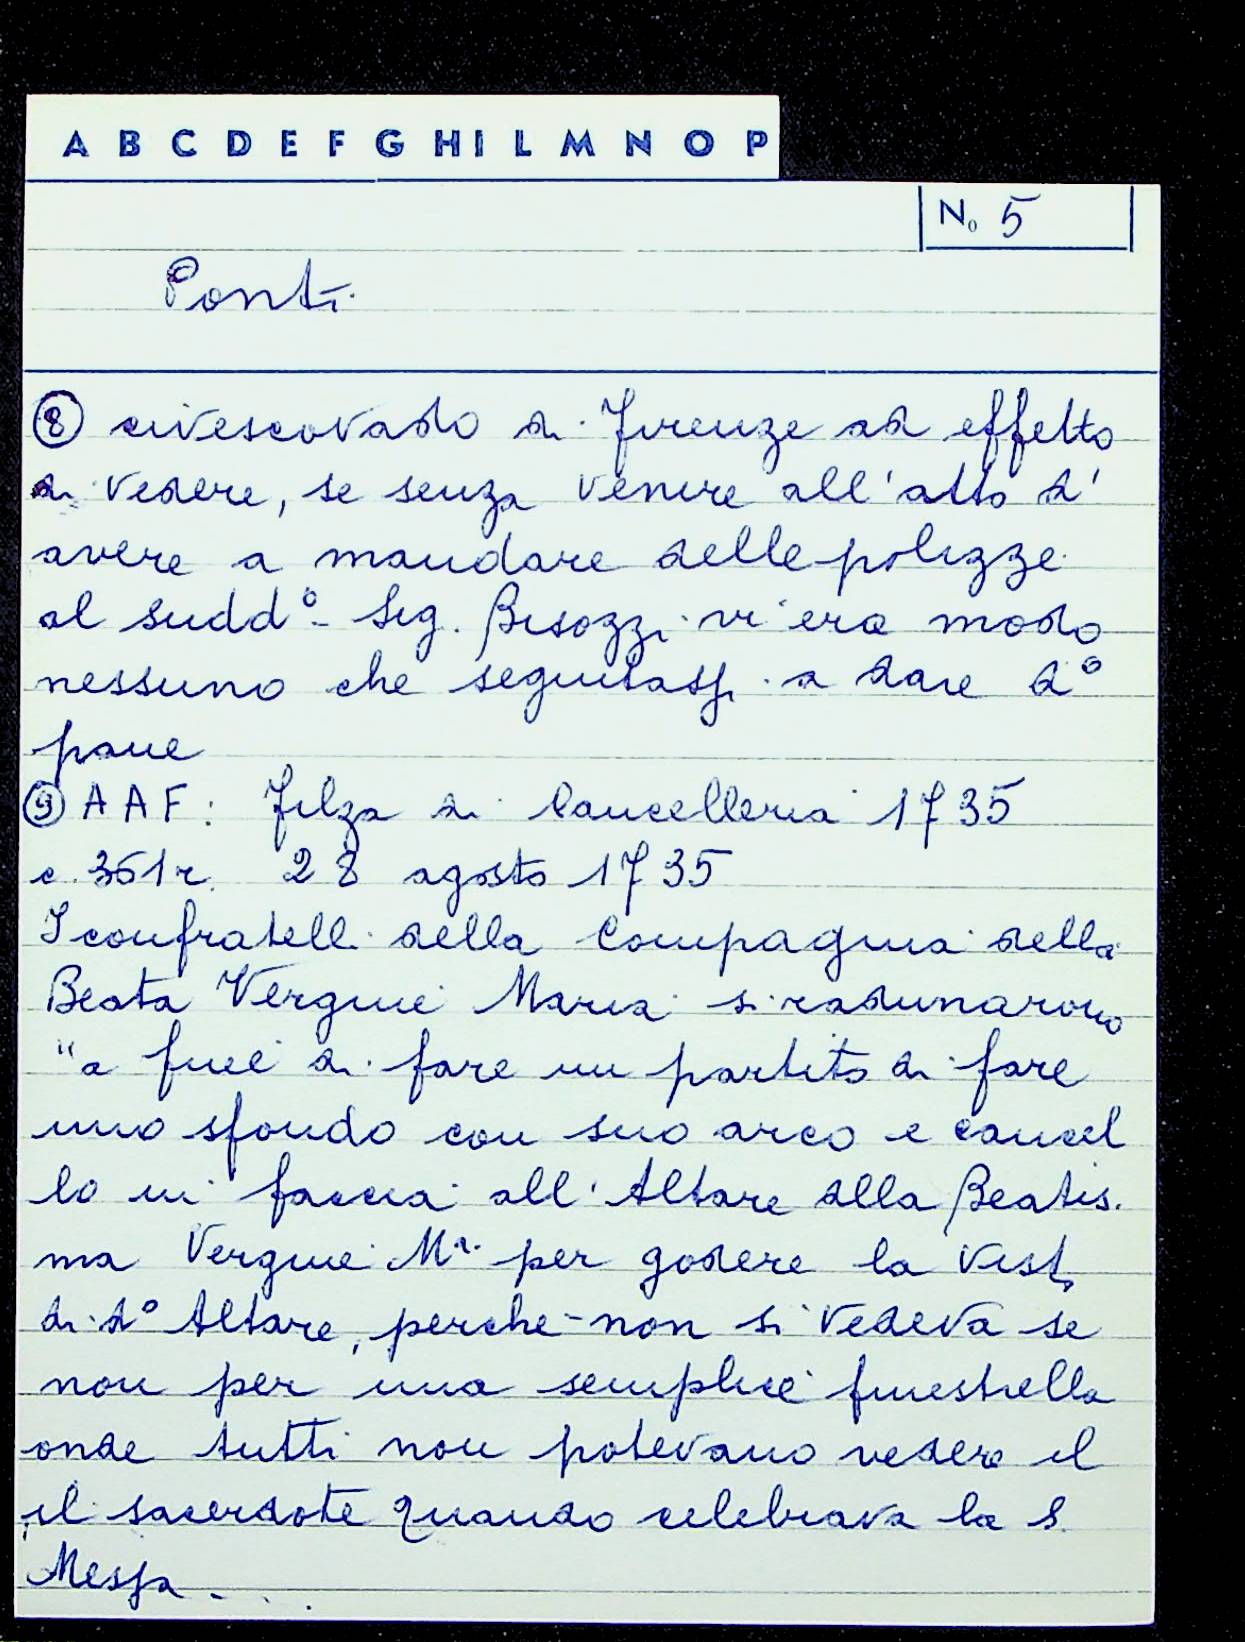 A B C D E F G H I L M N O P
No 5
Ponti
⑧ civescovado di Firenze ad effetto
di vedere, se senza venire all'atto d'
avere a mandare delle polizze
al sudd° Sig. Bisozzi vi era modo
nessuno che seguitassi a dare d°
pane
⑨ A A F: Filza di Cancelleria 1735
c. 361r. 28 agosto 1735
I confratelli della Compagnia della
Beata Vergine Maria si radunarono
"a fine di fare un partito di fare
uno sfondo con suo arco e cancel
lo in faccia all'Altare della Beatis.
ma Vergine Mª per godere la vista
di d° Altare, perche non si vedeva se
non per una semplice finestrella
onde tutti non potevano vedere il
il sacerdote quando celebrava la S.
Messa ...